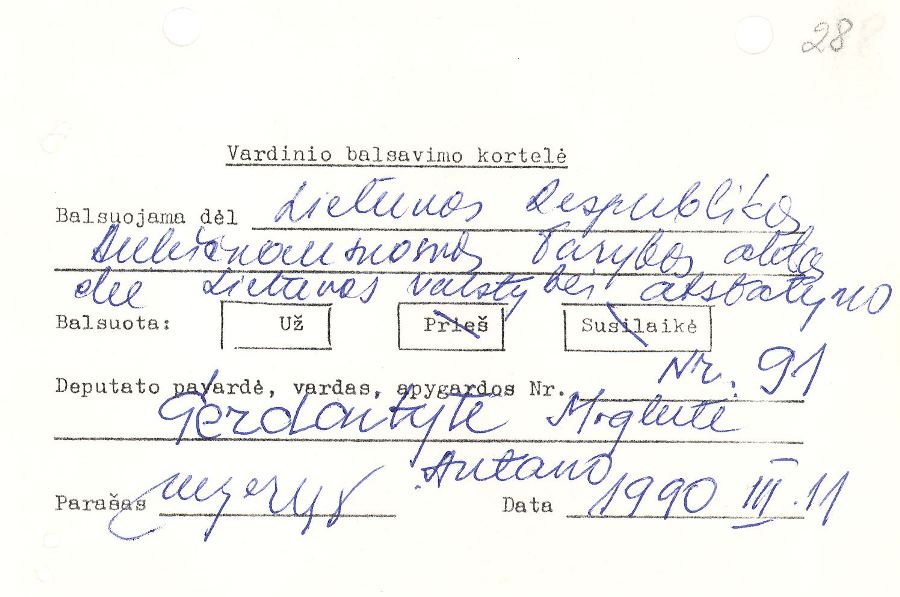 28
Vardinio balsavimo kortelė
Balsuojama dėl Lietuvos Respublikos
Aukščiausiosios Tarybos akto
dėl Lietuvos valstybės atstatymo
Balsuota: Už Prieš Susilaikė
Deputato pavardė, vardas, apygardos Nr. Nr. 91
Gerdaitytė Miglutė
Antano
Parašas Data 1990 III.11